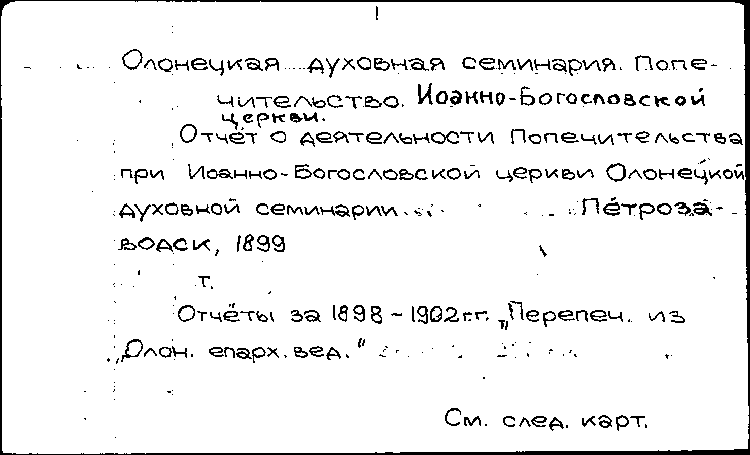 Олонецкая духовная семинария. Попе-
чительство. Иоанно-Богословской
церкви.
Отчёт о деятельности Попечительства
при Иоанно-Богословской церкви Олонецкой
духовной семинарии. Петроза-
водск, 1899
т.
Отчёты за 1898-1902 г.г. "Перепеч. из
"Олон. епарх. вед."
См. след. карт.